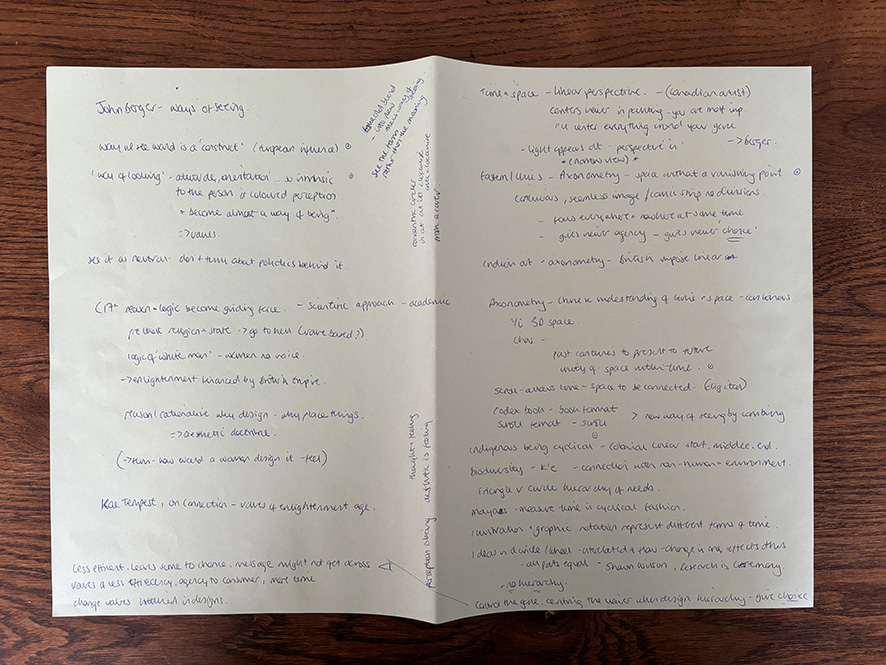 John Berger - ways of seeing.
way we see world is a 'construct' (European influence)
'way of looking' - attitudes, orientation .. so intrinsic
to the person is coloured perception
* become almost a way of being"
=> values.
see it as neutral - don't think about politics behind it.
C17th reason + logic become guiding force. - scientific approach - academic
pre church religion + state -> go to hell (value based?)
logic of 'white man' - women no voice.
-> enlightenment financed by British Empire.
reason / rationalise why design - why place things.
=> aesthetic doctrine.
(-> turn - how would a woman design it - feel)
Kae Tempest, on Connection - values of enlightenment age.
Less efficient. Leaves some to chance, message might not get across
values a less efficiency, agency to consumer, more time
change values in design.
see the form
rather than the meaning
concentric circles
thought + feeling
aesthetic is feeling
perception + being
Time + space - linear perspective. - (Canadian artist)
centers viewer in painting - you are most imp.
I'll center everything around your gaze
- light appears dif - perspective in -> Berger.
* (narrow view) *
Eastern / Chinese - Axonometry - space without a vanishing point
continuous, seamless image / comic strip no divisions.
- focus everywhere + nowhere at same time
- gives viewer agency - gives viewer 'choice'
Indian art - axonometry - British impose linear
Axonometry - Chinese understanding of time + space - continuous
Yi 3D space.
Chu -
past continues to present to future
unity of space within time.
sense - allows time - space to be connected. (digital)
codex book - book format
scroll format - scroll > new way of seeing by combining
indigenous being cyclical - colonial linear start, middle, end.
biodiversity - connection with non-human + environment.
triangle v circle hierarchy of needs.
Mayans - measure time in cyclical fashion.
illustration + graphic notation represent different forms of time.
Ideas in a circle / wheel - interrelated + flow - change in one effects others
- all parts equal - Shawn Wilson, Research is Ceremony.
- no hierarchy.
control the gaze, centring the viewer when design hierarchy - give choice